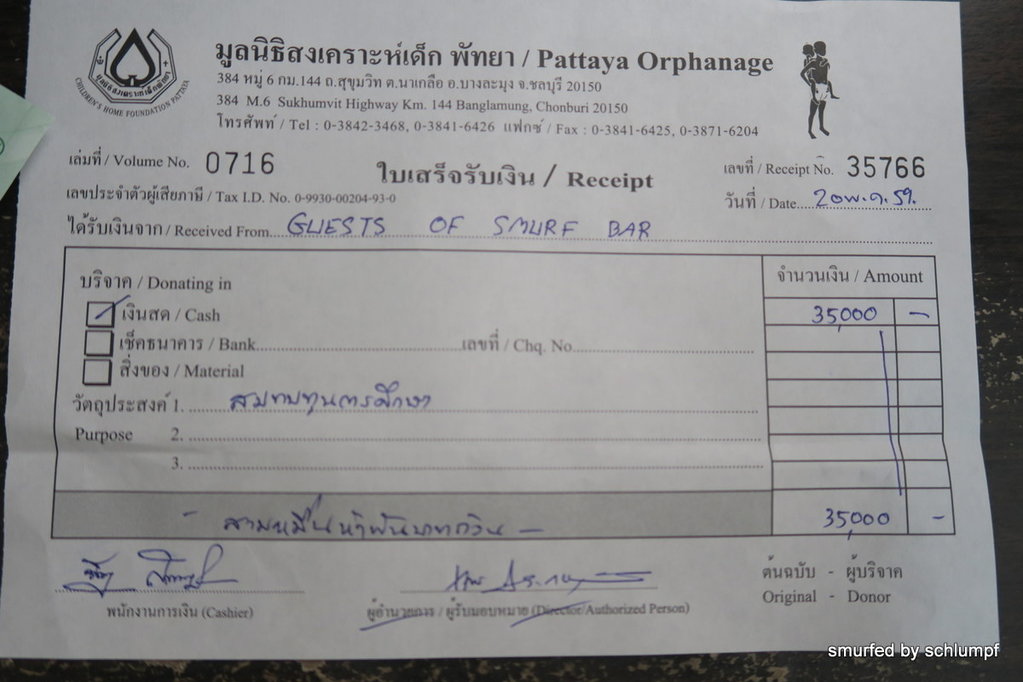 มูลนิธิสงเคราะห์เด็ก พัทยา / Pattaya Orphanage
384 หมู่ 6 กม.144 ถ.สุขุมวิท ต.นาเกลือ อ.บางละมุง จ.ชลบุรี 20150
384 M.6 Sukhumvit Highway Km. 144 Banglamung, Chonburi 20150
โทรศัพท์ / Tel : 0-3842-3468, 0-3841-6426 แฟกซ์ / Fax : 0-3841-6425, 0-3871-6204
CHILDREN'S HOME FOUNDATION PATTAYA
เล่มที่ / Volume No. 0716
ใบเสร็จรับเงิน / Receipt
เลขที่ / Receipt No. 35766
เลขประจำตัวผู้เสียภาษี / Tax I.D. No. 0-9930-00204-93-0
วันที่ / Date 20 พ.ค. 59.
ได้รับเงินจาก / Received From GUESTS OF SMURF BAR
บริจาค / Donating in
จำนวนเงิน / Amount
เงินสด / Cash 35,000 -
เช็คธนาคาร / Bank เลขที่ / Chq. No.
สิ่งของ / Material
วัตถุประสงค์ 1. สมทบทุนการศึกษา
Purpose 2.
3.
- สามหมื่นห้าพันบาทถ้วน - 35,000 -
พนักงานการเงิน (Cashier)
ผู้อำนวยการ / ผู้รับมอบหมาย (Director/Authorized Person)
ต้นฉบับ - ผู้บริจาค
Original - Donor
smurfed by schlumpf